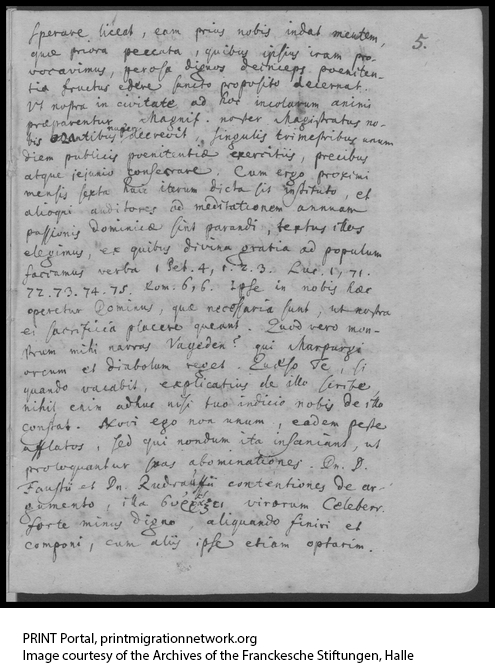 5.
sperare liceat, eam prius nobis indat mentem,
quae priora peccata, quibus ipsius iram pro-
vocavimus, perosa dignos deinceps poeniten-
tiae fructus edere sancto proposito decernat.
Ut nostra in civitate ad hoc incolarum animi
praeparentur Magnif. noster Magistratus no-
bis decrevit, singulis trimestribus unum
diem publicis poenitentiae exercitiis, precibus
atque jejunio consecrare. Cum ergo proximi
mensis sexta huic iterum dicta sit instituto, et
alioqui auditores ad meditationem annuam
passionis dominicae sint parandi, textus illos
elegimus, ex quibus divina gratia ad populum
faciamus verba 1 Pet. 4, 1. 2. 3. Luc. 1, 71.
72. 73. 74. 75. Rom. 6, 6. Ipse in nobis haec
operetur Dominus, quae necessaria sunt, ut nostra
ei sacrificia placere queant. Quod vero mon-
strum mihi narras Vageden? qui Marpurgi
orcum et diabolum neget. Quaeso Te, si
quando vacabit, explicatius de illo scribe
nihil enim adhuc nisi tuo indicio nobis de illo
constat. Novi ego non unum, eadem peste
afflatos, sed qui nondum ita insaniant, ut
proloquantur suas abominationes. Dn. D.
Faustii et Dn. contentiones de ar-
gumento, illa virorum Celeberr.
forte minus digno aliquando finiri et
componi, cum aliis ipse etiam optarim.
PRINT Portal, printmigrationnetwork.org
Image courtesy of the Archives of the Franckesche Stiftungen, Halle